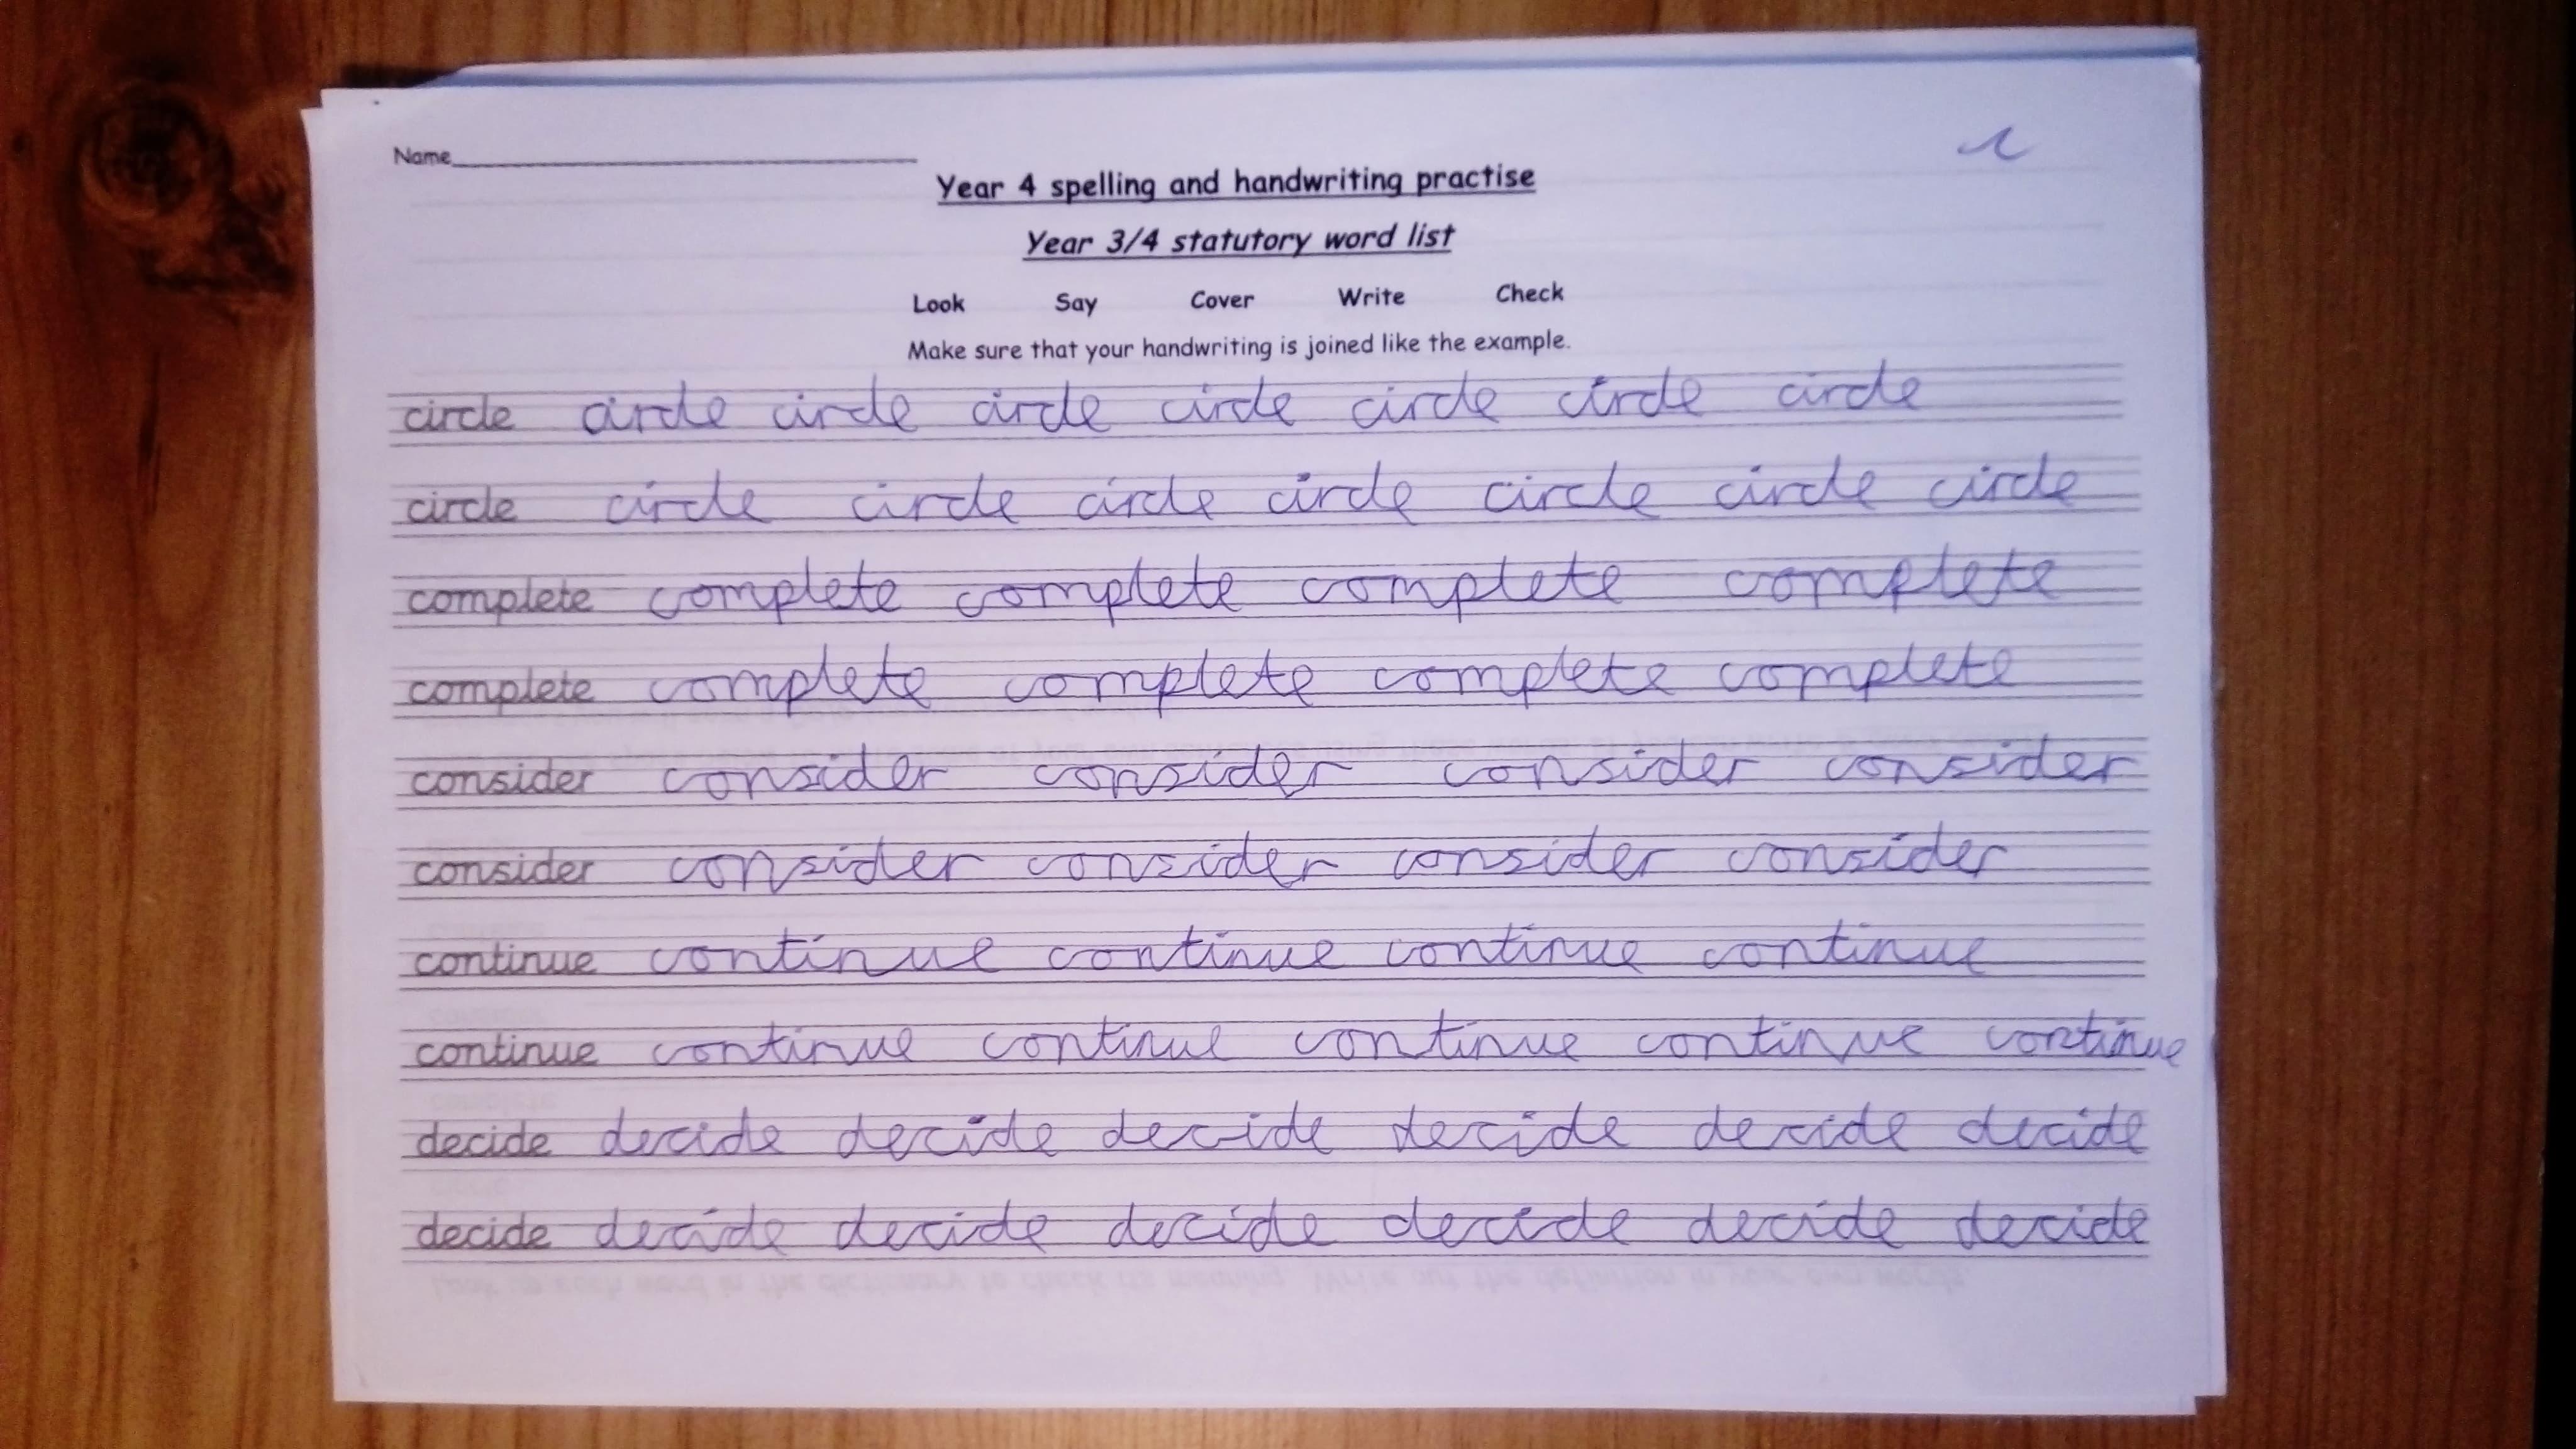 Name
Year 4 spelling and handwriting practise
Year 3/4 statutory word list
Look Say Cover Write Check
Make sure that your handwriting is joined like the example.
circle circle circle circle circle circle circle circle
circle circle circle circle circle circle circle circle
complete complete complete complete complete
complete complete complete complete complete
consider consider consider consider consider
consider consider consider consider consider
continue continue continue continue continue
continue continue continue continue continue continue
decide decide decide decide decide decide decide
decide decide decide decide decide decide decide